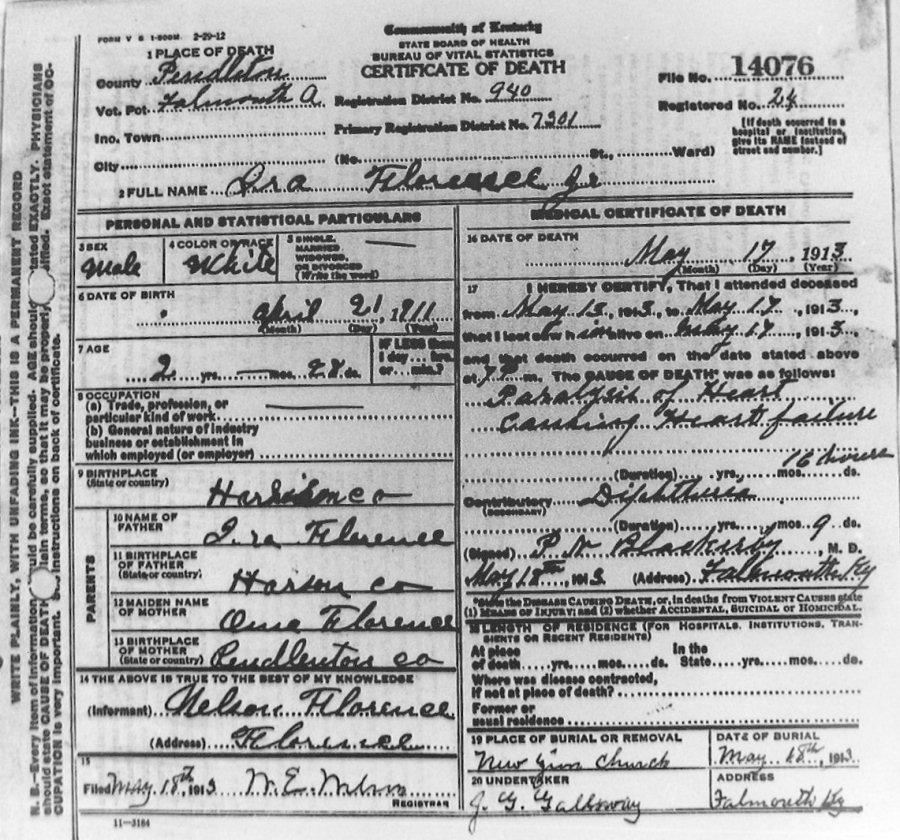 FORM V S 1-500M. 2-29-12
Commonwealth of Kentucky
STATE BOARD OF HEALTH
BUREAU OF VITAL STATISTICS
CERTIFICATE OF DEATH
1 PLACE OF DEATH
County Pendleton
Vot. Pct. Falmouth A
Inc. Town
City
Registration District No. 940
Primary Registration District No. 7301
(No. St., Ward)
File No. 14076
Registered No. 24
[If death occurred in a
hospital or institution,
give its NAME instead of
street and number.]
2 FULL NAME Ira Florence Jr
PERSONAL AND STATISTICAL PARTICULARS
3 SEX
Male
4 COLOR OR RACE
White
5 SINGLE,
MARRIED,
WIDOWED,
OR DIVORCED
(Write the word)
6 DATE OF BIRTH
April 21, 1911
(Month) (Day) (Year)
7 AGE
2 yrs. mos. 28 ds.
IF LESS than
1 day hrs.
or min.?
8 OCCUPATION
(a) Trade, profession, or
particular kind of work
(b) General nature of industry
business or establishment in
which employed (or employer)
9 BIRTHPLACE
(State or country)
Harrison co
PARENTS
10 NAME OF
FATHER
Ira Florence
11 BIRTHPLACE
OF FATHER
(State or country)
Harson co
12 MAIDEN NAME
OF MOTHER
Oma Florence
13 BIRTHPLACE
OF MOTHER
(State or country)
Pendlenton co
14 THE ABOVE IS TRUE TO THE BEST OF MY KNOWLEDGE
(Informant) Nelson Florence
(Address) Florence
15
Filed May 18th, 1913 W. E.
REGISTRAR
11-3184
MEDICAL CERTIFICATE OF DEATH
16 DATE OF DEATH
May 17, 1913
(Month) (Day) (Year)
17 I HEREBY CERTIFY, That I attended deceased
from May 15, 1913, to May 17, 1913,
that I last saw him alive on May 17, 1913,
and that death occurred on the date stated above
at 7 P m. The CAUSE OF DEATH* was as follows:
Paralysis of Heart
Causing Heart failure
16 hours
(Duration) yrs. mos. ds.
Contributory Diphtheria
(SECONDARY)
(Duration) yrs. mos. 9 ds.
(Signed) P. N. Blackerby, M. D.
May 18th, 1913 (Address) Falmouth Ky
*State the DISEASE CAUSING DEATH, or, in deaths from VIOLENT CAUSES state
(1) MEANS OF INJURY; and (2) whether ACCIDENTAL, SUICIDAL or HOMICIDAL.
18 LENGTH OF RESIDENCE (FOR HOSPITALS, INSTITUTIONS, TRAN-
SIENTS OR RECENT RESIDENTS)
At place
of death yrs. mos. ds.
In the
State yrs. mos. ds.
Where was disease contracted,
if not at place of death?
Former or
usual residence
19 PLACE OF BURIAL OR REMOVAL
New Zion Church
DATE OF BURIAL
May 18th, 1913
20 UNDERTAKER
J. G. Galloway
ADDRESS
Falmouth Ky
WRITE PLAINLY, WITH UNFADING INK—THIS IS A PERMANENT RECORD
N. B.—Every item of information should be carefully supplied. AGE should stated EXACTLY. PHYSICIANS
should state CAUSE OF DEATH plain terms, so that it may be properly classified. Exact statement of OC-
CUPATION is very important. instructions on back of certificate.